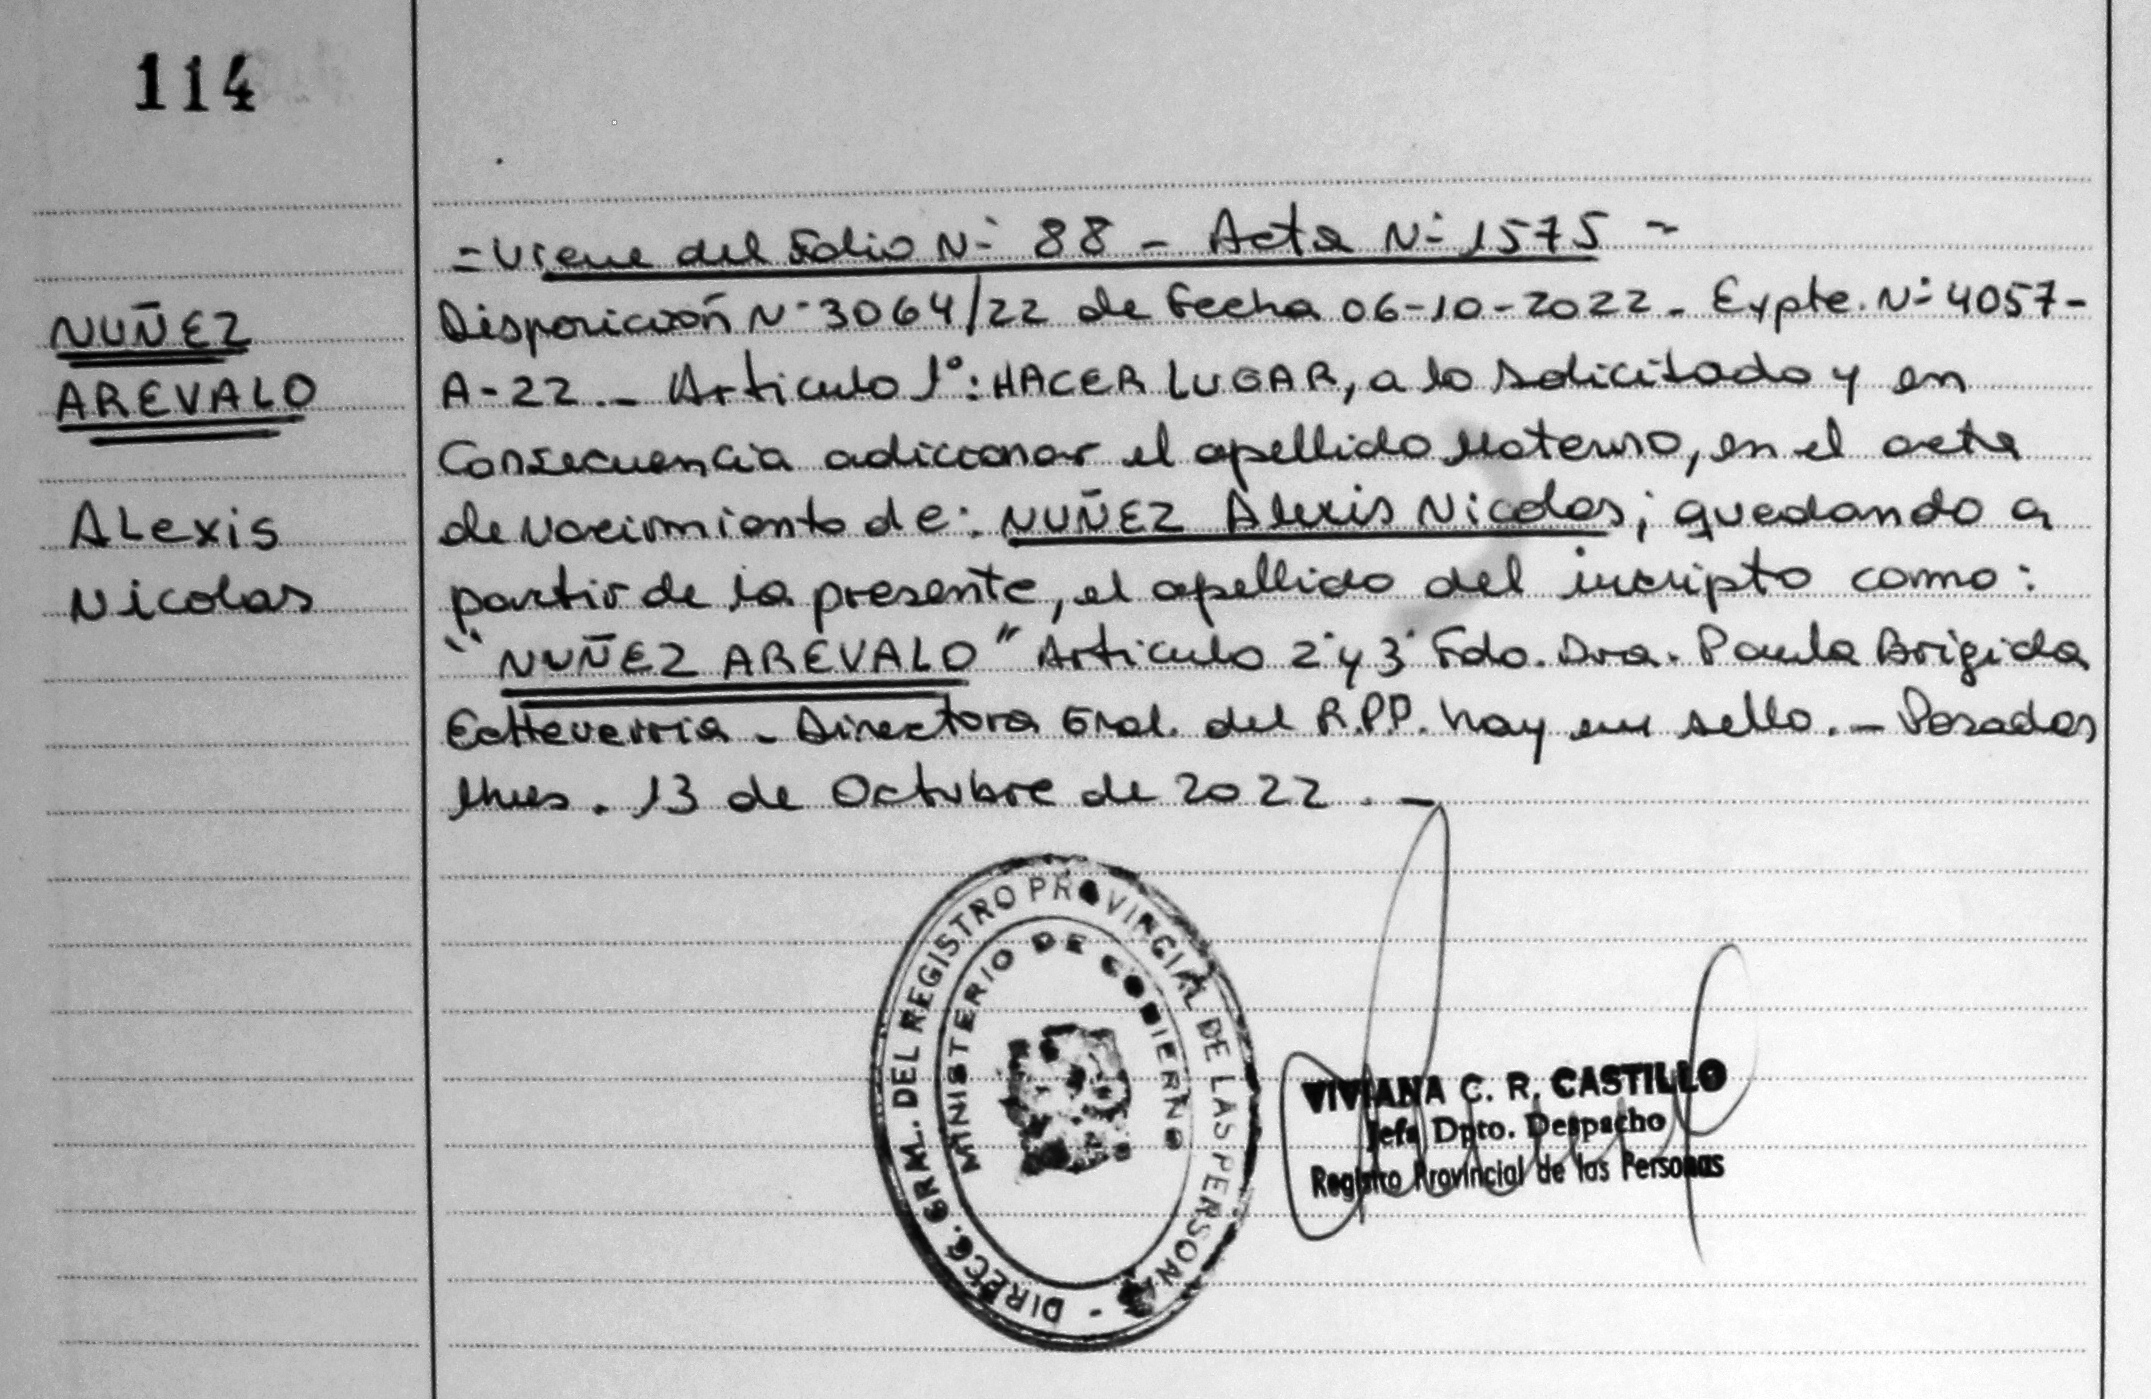 114
NUÑEZ
AREVALO
ALexis
Nicolas
= Viene del Folio N- 88 - Acta N- 1575 -
Disposición N-3064/22 de Fecha 06-10-2022. Expte. N-4057-
A-22.- Articulo 1°: HACER LUGAR, a lo solicitado y en
Consecuencia adiccionar el apellido Materno, en el acta
de Nacimiento de: NUÑEZ Alexis Nicolas; quedando a
partir de la presente, el apellido del incripto como:
"NUÑEZ AREVALO" Articulo 2° y 3° Fdo. Dra. Paula Brigida
Echeverria - Directora Gral. del R.P.P. hay un sello. - Posadas
Mnes. 13 de Octubre de 2022. -
DIRECC. GRAL. DEL REGISTRO PROVINCIAL DE LAS PERSONAS -
MINISTERIO DE GOBIERNO
VIVIANA C. R. CASTILLO
Jefa Dpto. Despacho
Registro Provincial de las Personas